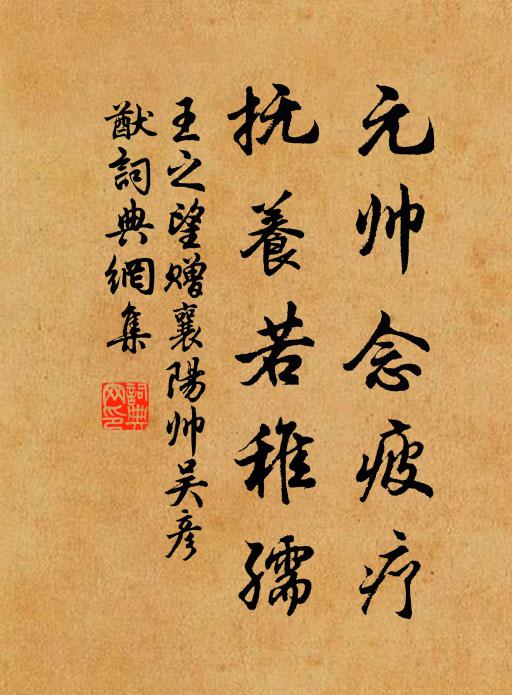 元帅念疲疗
抚養若稚孺
王之望赠襄陽帅吴彦
猷詞典網集
詞典
网印